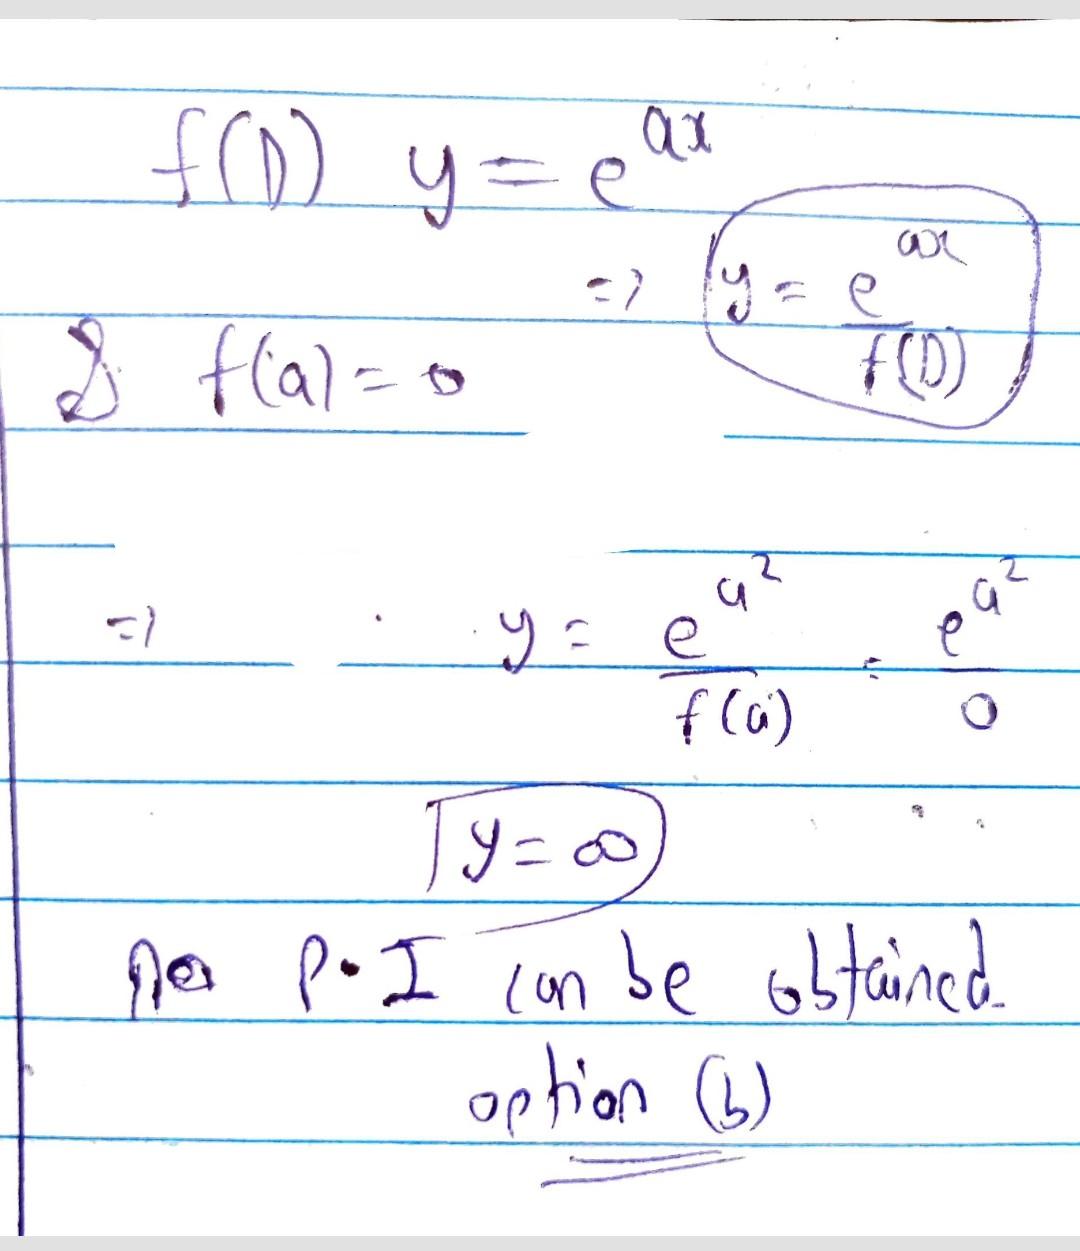 f(D) y = e^{ax}
=> y = \frac{e^{ax}}{f(D)}
& f(a) = 0
=> y = \frac{e^{a^2}}{f(a)} = \frac{e^{a^2}}{0}
y = ∞
no P.I can be obtained
option (b)